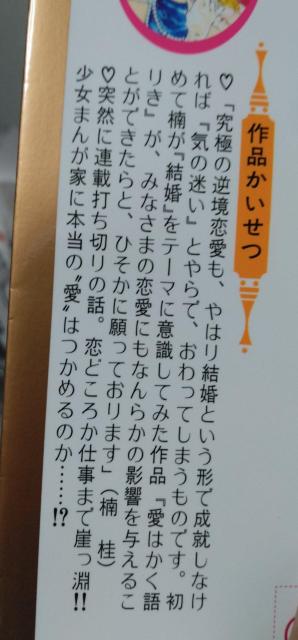 作品かいせつ
♡「究極の逆境恋愛も、やはり結婚という形で成就しなけ
れば『気の迷い』とやらで、おわってしまうものです。初
めて楠が『結婚』をテーマに意識してみた作品『愛はかく語
りき』が、みなさまの恋愛にもなんらかの影響を与えるこ
とができたらと、ひそかに願っております」（楠　桂）
♡突然に連載打ち切りの話。恋どころか仕事まで崖っ淵!!
少女まんが家に本当の〝愛〟はつかめるのか……!?